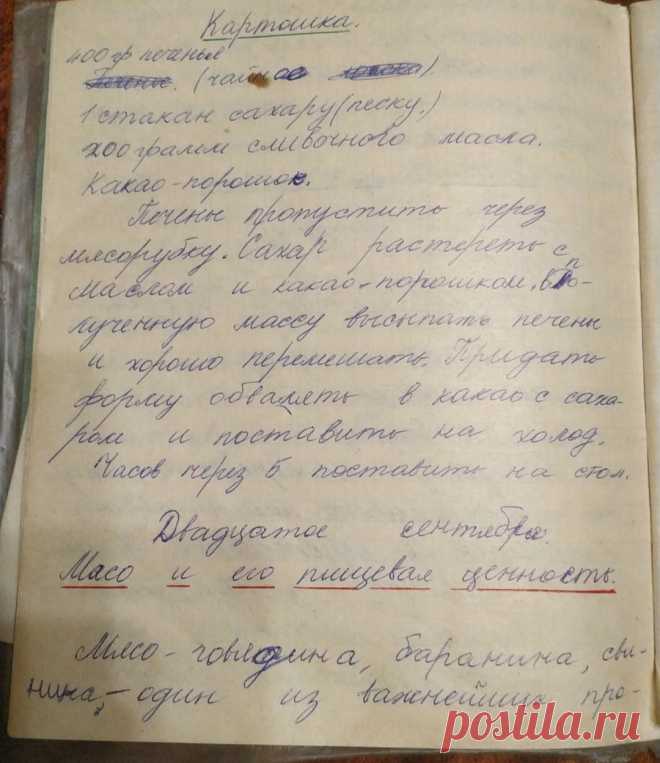 Картошка.
400 гр печенья
Печенье. (чайное)
1 стакан сахару (песку.)
200 грамм сливочного масла.
Какао-порошок.
Печенье пропустить через
мясорубку. Сахар растереть с
маслом и какао-порошком. В по-
лученную массу высыпать печенье
и хорошо перемешать. Придать
форму обвалять в какао с саха-
ром и поставить на холод.
Часов через 5 поставить на стол.
Двадцатое сентября.
Мясо и его пищевая ценность.
Мясо-говядина, баранина, сви-
нина, – один из важнейших про-
postila.ru